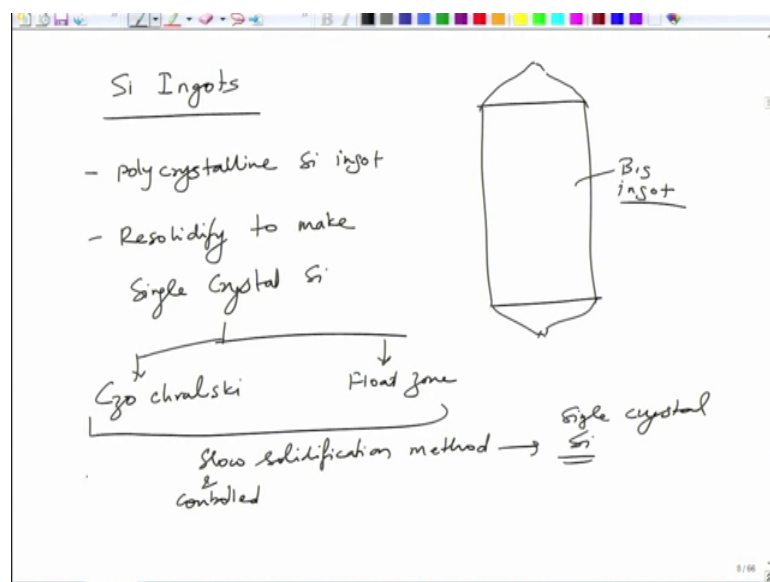 Si Ingots
- Polycrystalline Si ingot
- Resolidify to make
Single Crystal Si
Czochralski
Float zone
Slow solidification method → Single crystal
&
controlled
Si
Big
ingot
8/66